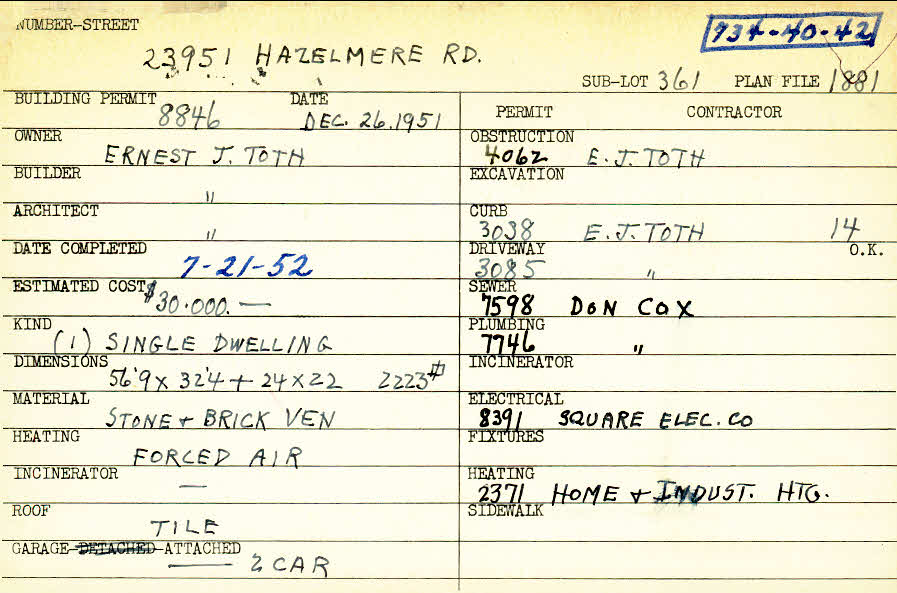 NUMBER-STREET
23951 HAZELMERE RD.
734-40-42
SUB-LOT 361 PLAN FILE 1881
BUILDING PERMIT 8846 DATE DEC. 26.1951
OWNER
ERNEST J. TOTH
BUILDER
"
ARCHITECT
"
DATE COMPLETED
7-21-52
ESTIMATED COST $30.000.—
KIND
(1) SINGLE DWELLING
DIMENSIONS
56'9 x 32'4 + 24 x 22 2223#
MATERIAL
STONE + BRICK VEN
HEATING
FORCED AIR
INCINERATOR
—
ROOF
TILE
GARAGE-DETACHED-ATTACHED
2 CAR
PERMIT CONTRACTOR
OBSTRUCTION
4062 E. J. TOTH
EXCAVATION
CURB
3038 E. J. TOTH 14
DRIVEWAY O.K.
3085 "
SEWER
7598 DON COX
PLUMBING
7746 "
INCINERATOR
ELECTRICAL
8391 SQUARE ELEC. CO
FIXTURES
HEATING
2371 HOME + INDUST. HTG.
SIDEWALK